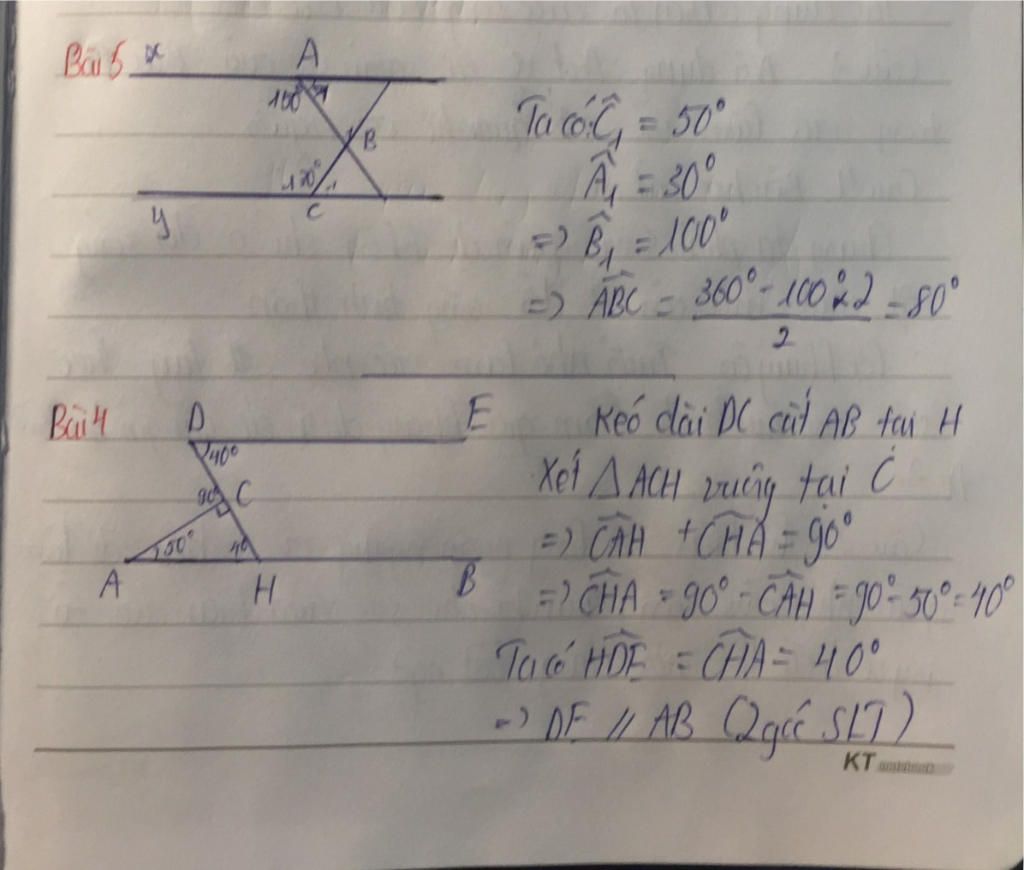 Bài 5
x
A
150° 1
1
B
130° 1
C
y
Ta có: Ĉ₁ = 50°
Â₁ = 30°
=> B̂₁ = 100°
=> ÂBC = (360° - 100° x 2) / 2 = 80°
Bài 4
D E
40°
90° C
50° 40
A H B
Kéo dài DC cắt AB tại H
Xét △ACH vuông tại C
=> ĈAH + ĈHA = 90°
=> ĈHA = 90° - ĈAH = 90° - 50° = 40°
Ta có ĤDE = ĈHA = 40°
=> DE // AB (2 góc SLT)
KT